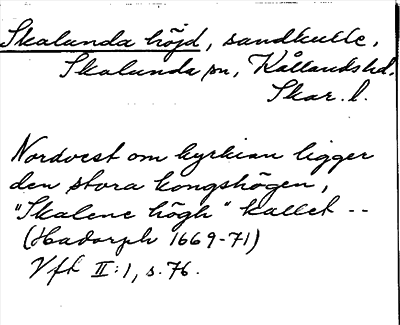 Skalunda höjd, sandkulle,
Skalunda sn, Kållandshd.
Skar. l.
Nordvest om kyrkian ligger
den stora kongshögen,
"Skalene högh" kallet --
(Hadorph 1669-71)
Vft II:1, s. 76.